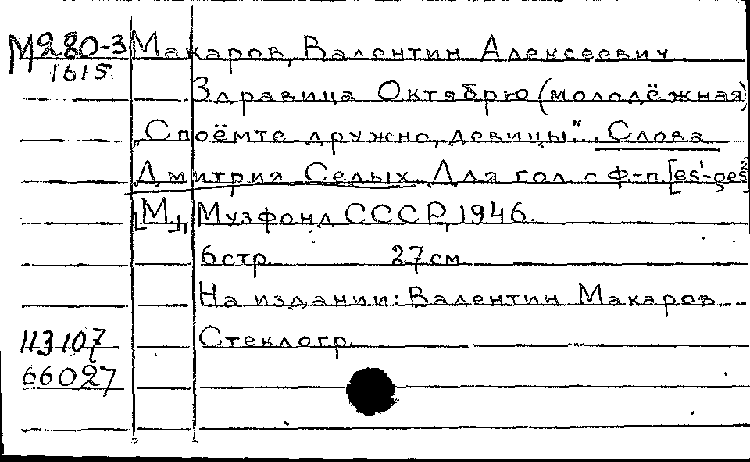 М280-3 Макаров, Валентин Алексеевич
1615
Здравица Октябрю (молодёжная)
"Споёмте дружно, девицы". Слова
Дмитрия Седых. Для гол. с ф-п. [es¹-ges²]
[М.], Музфонд СССР, 1946.
6 стр. 27 см.
На издании: Валентин Макаров.
113107 Стеклогр.
66027